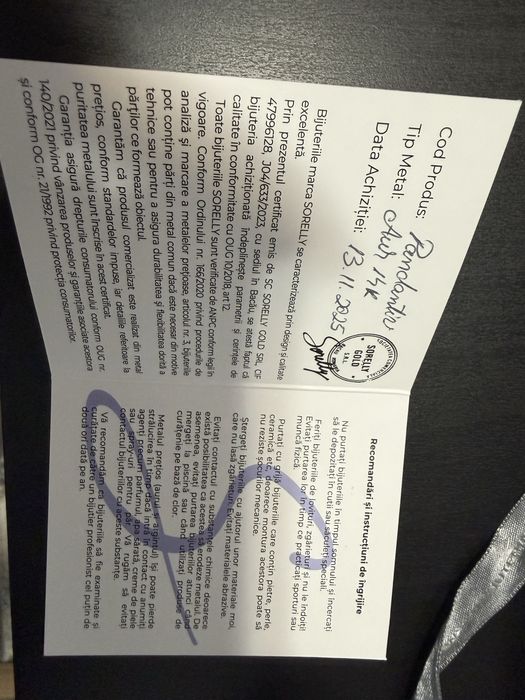 Cod Produs: Pandantiv
Tip Metal: Aur 14k
Data Achiziției: 13.11.2025
SORELLY
GOLD
S.R.L.
Bijuteriile marca SORELLY se caracterizează prin design și calitate
excelentă.
Prin prezentul certificat emis de SC SORELLY GOLD SRL, CIF
47996128, J04/633/2023, cu sediul în Bacău, se atestă faptul că
bijuteria achiziționată îndeplinește parametrii și cerințele de
calitate în conformitate cu OUG 10/2018, art.12.
Toate bijuteriile SORELLY sunt verificate de ANPC conform legii în
vigoare. Conform Ordinului nr. 166/2020 privind procedurile de
analiză și marcare a metalelor prețioase, articolul nr. 3, bijuteriile
pot conține părți din metal comun dacă este necesar din motive
tehnice sau pentru a asigura durabilitatea și flexibilitatea dorită a
părților ce formează obiectul.
Garantăm că produsul comercializat este realizat din metal
prețios, conform standardelor impuse, iar detaliile referitoare la
puritatea metalului sunt înscrise în acest certificat.
Garanția asigură drepturile consumatorului conform OUG nr.
140/2021 privind vânzarea produselor și garanțiile asociate acestora
și conform OG nr. 21/1992 privind protecția consumatorilor.
Recomandări și instrucțiuni de îngrijire
Nu purtați bijuteriile în timpul somnului și încercați
să le depozitați în cutii sau săculeți speciali.
Feriți bijuteriile de lovituri, zgârieturi și nu le îndoiți!
Evitați purtarea lor în timp ce practicați sporturi sau
muncă fizică.
Purtați cu grijă bijuteriile care conțin pietre, perle,
ceramică etc., deoarece montura acestora poate să
nu reziste șocurilor mecanice.
Ștergeți bijuteriile cu ajutorul unor materiale moi,
care nu lasă zgârieturi. Evitați materialele abrazive.
Evitați contactul cu substanțele chimice deoarece
există posibilitatea ca acestea să erodeze metalul. De
asemenea, evitați purtarea bijuteriilor atunci când
mergeți la piscină sau când utilizați produse de
curățenie pe bază de clor.
Metalul prețios (aurul sau argintul) își poate pierde
strălucirea în timp dacă intră în contact cu anumiți
agenți precum parfumul, apa sărată, creme de piele
sau spray-uri pentru păr. Vă rugăm să evitați
contactul bijuteriilor cu aceste substanțe.
Vă recomandăm ca bijuteriile să fie examinate și
curățate de către un bijutier profesionist cel puțin de
două ori pată pe an.